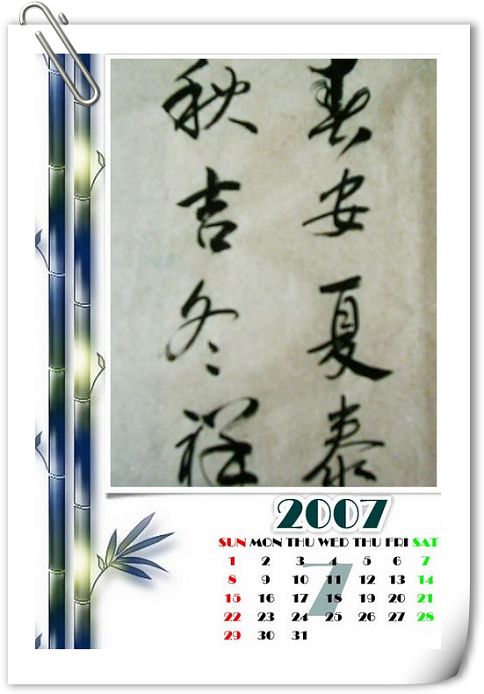 春安夏泰
秋吉冬祥
2007
7
SUN MON THU WED THU FRI SAT
1 2 3 4 5 6 7
8 9 10 11 12 13 14
15 16 17 18 19 20 21
22 23 24 25 26 27 28
29 30 31